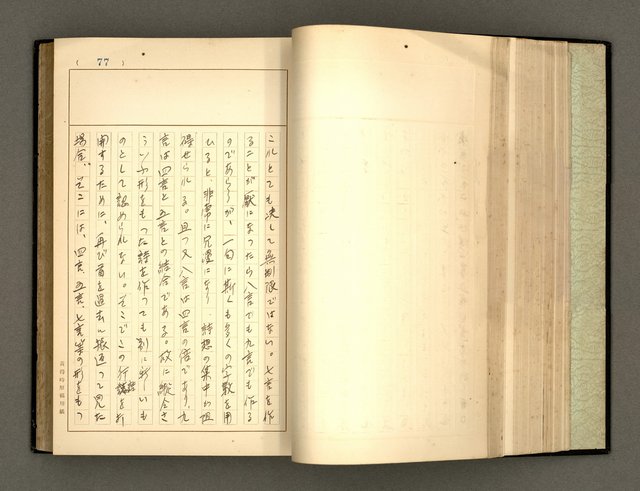 ( 77 )
これとても決して無制限ではない。七言を作
ることが厭になつたら八言でも九言でも作る
のであらうが、一句に斯くも多くの字数を用
ひると、非常に冗漫になり、詩想の集中が阻
碍せられる。且つ又八言は四言の倍であり、九
言は四言と五言との結合である。故に縦令さ
ういふ形をもつた詩を作つても別に新しいも
のとして認められない。そこでこの行詰を打
開するために、再び首を過去へ振返つて見た
場合、そこには、四言、五言、七言等の形をもつ
黃得時原稿用紙